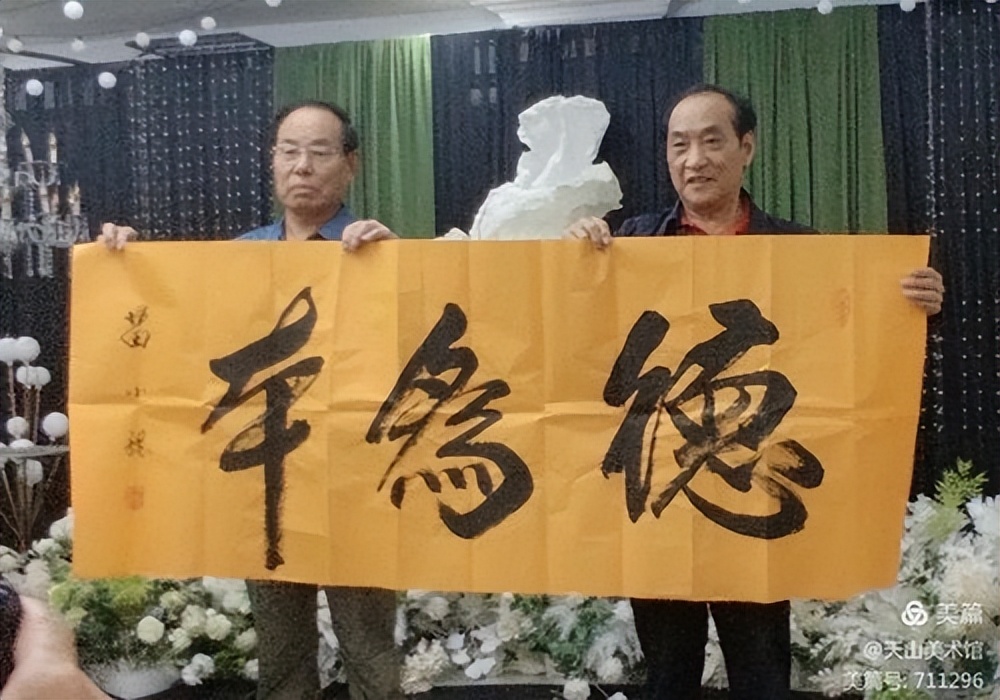 德為本
苗小
美篇
@天山美术馆
美篇号: 711296